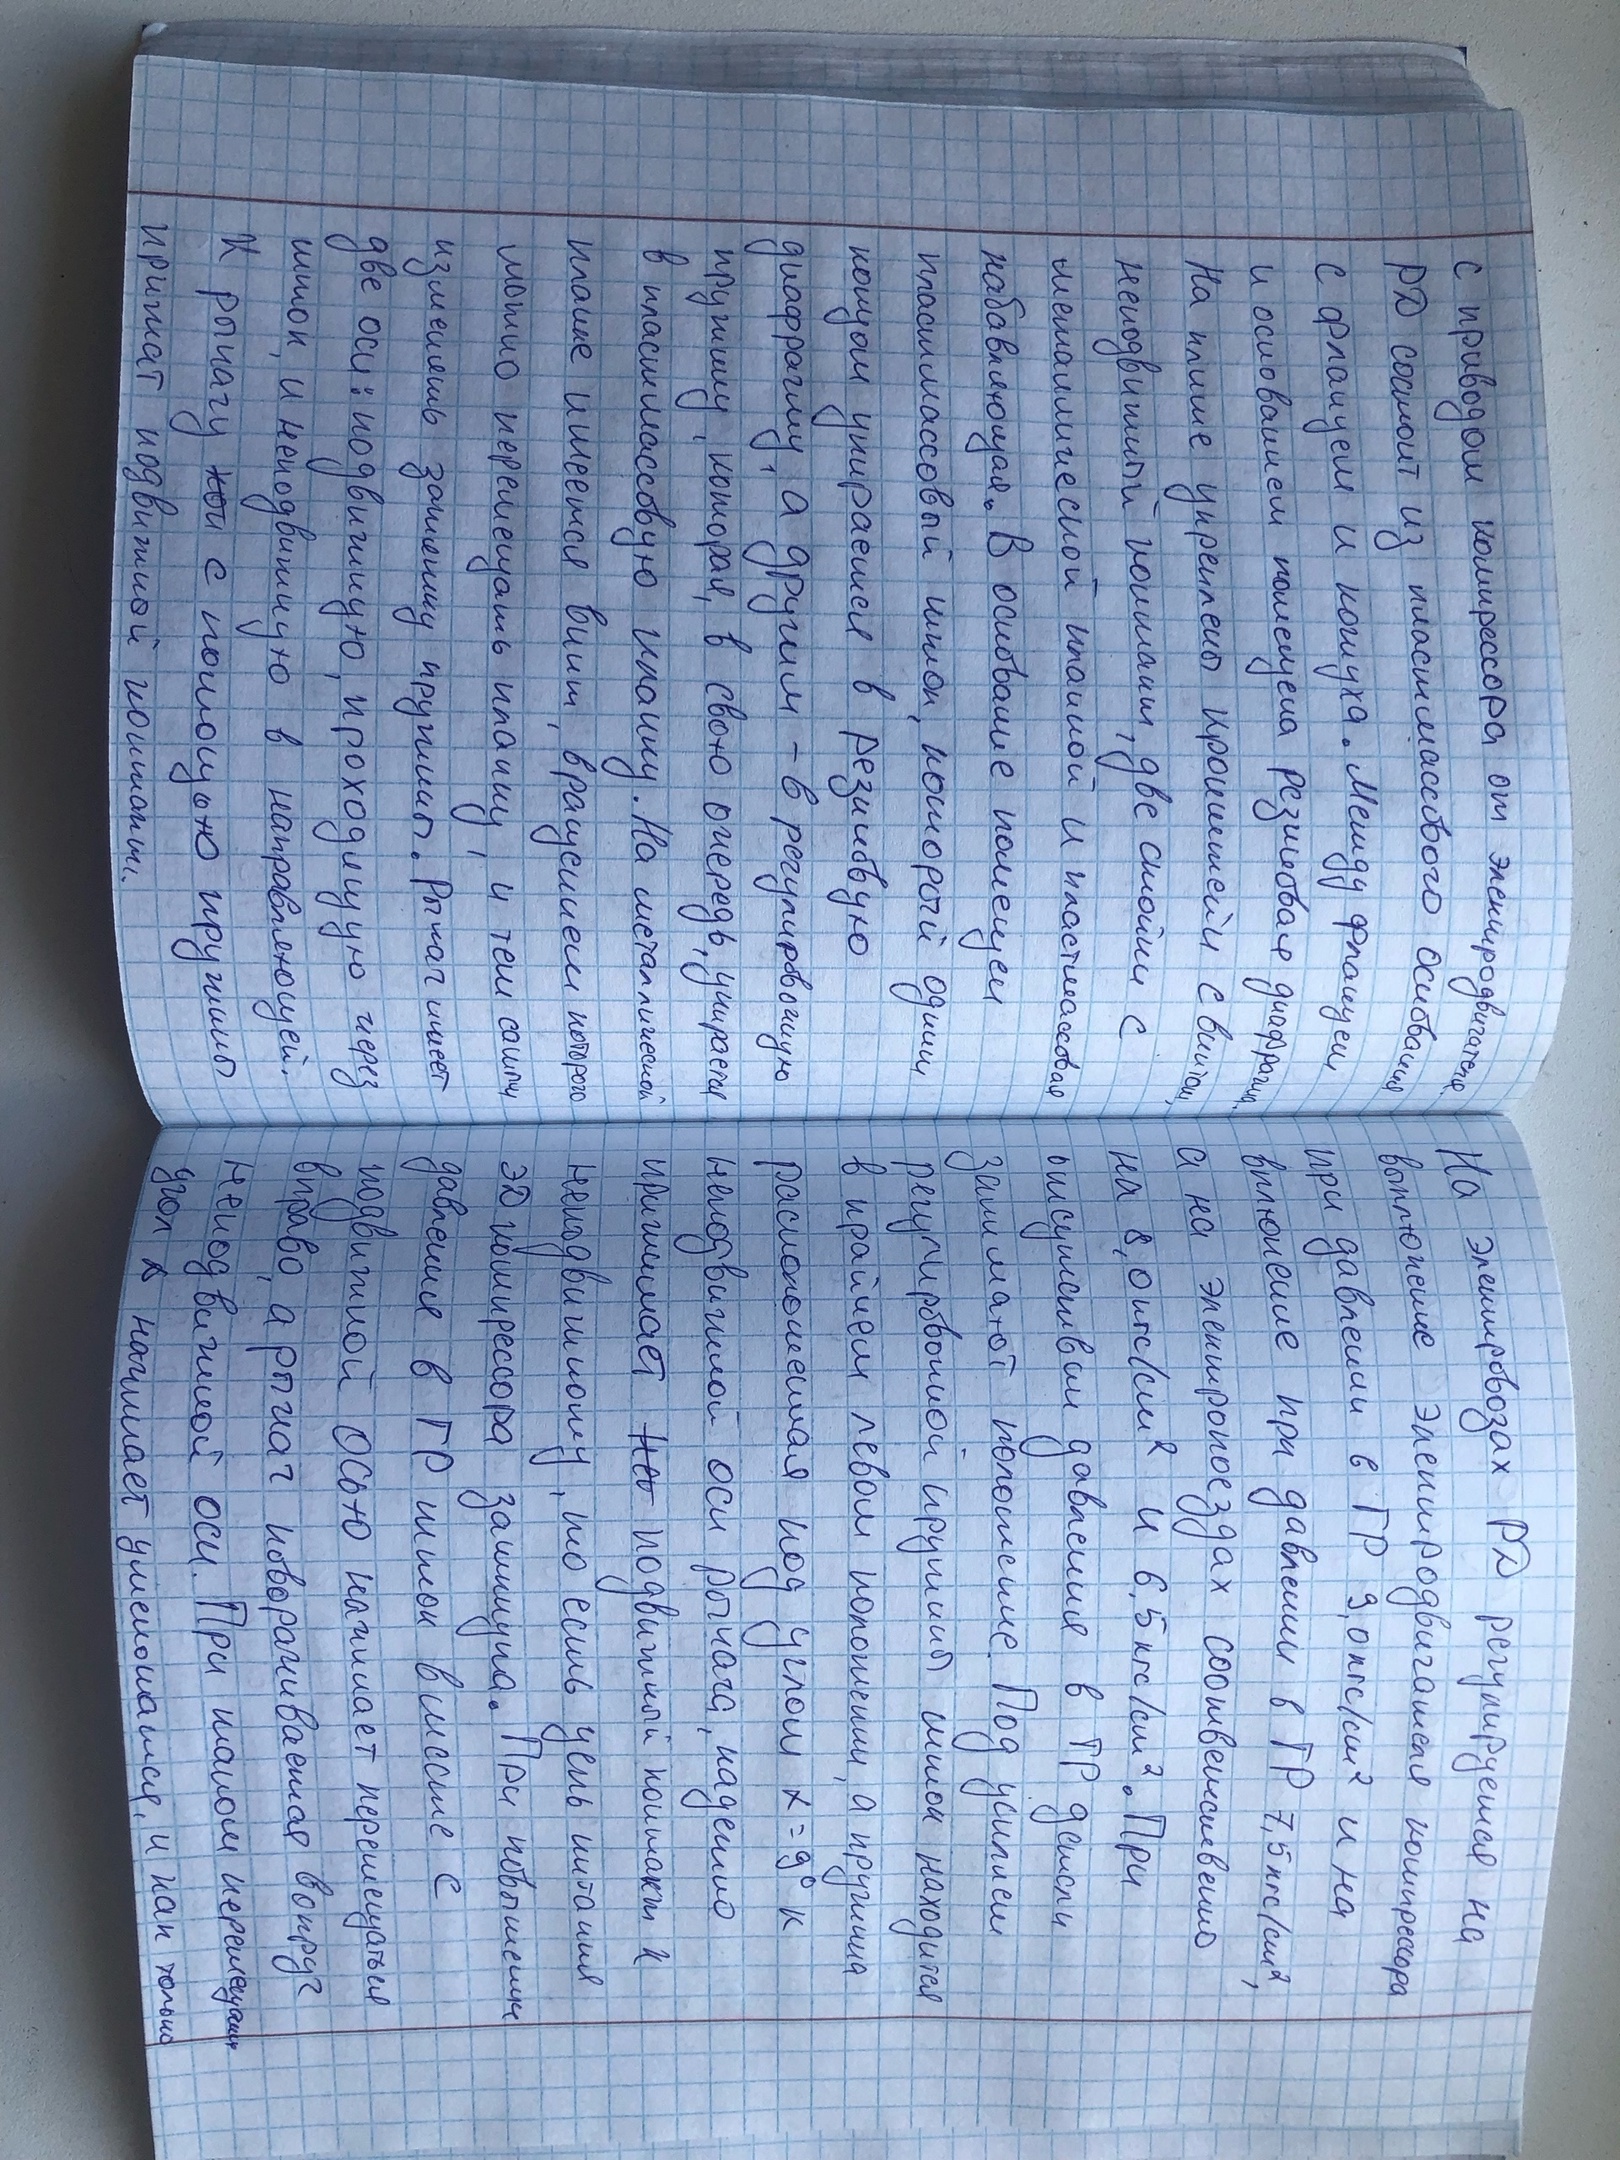 с приводом компрессора от электродвигателя.
РД состоит из пластмассового основания
с фланцем и кожуха. Между фланцем
и основанием помещена резиновая диафрагма.
На плите укреплены кронштейн с винтом,
неподвижный контакт, две стойки с
металлической планкой и пластмасовая
набавляющая. В основание помещен
пластмассовый шток, который одним
концом упирается в резиновую
диафрагму, а другим – в регулировочную
пружину, которая, в свою очередь, упирается
в пластмассовую планку. На металлической
планке имеется винт, вращением которого
можно перемещать планку, и тем самым
изменять затяжку пружины. Рычаг имеет
две оси: подвижную, проходящую через
шток, и неподвижную в направляющей.
К рычагу с помощью пружины
прижат подвижной контакт.
На электровозах РД регулируется на
выключение электродвигателя компрессора
при давлении в ГР 9,0кгс/см² и на
включение при давлении в ГР 7,5кгс/см²,
а на электропоездах соответственно
на 8,0кгс/см² и 6,5кгс/см². При
отсутствии давления в ГР детали
занимают положение. Под усилием
регулировочной пружины шток находится
в крайнем левом положении, а пружина
расположенная под углом α=9° к
неподвижной оси рычага, надежно
прижимает подвижный контакт к
неподвижному, то есть цепь питания
ЭД компрессора замкнута. При повышении
давления в ГР шток вместе с
подвижной осью начинает перемещаться
вправо, а рычаг поворачивается вокруг
неподвижной оси. При таком перемещении
угол α начинает уменьшаться, и как только